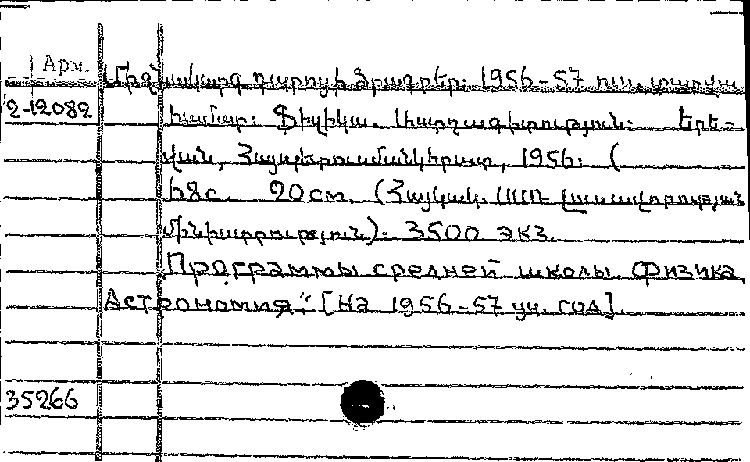 Арм. Միջնակարգ դպրոցի ծրագրեր. 1956-57 ուս. տարվա
2-12082 համար: Ֆիզիկա. Աստղագիտություն: Երե-
վան, Հայպետուսմանկհրատ, 1956: (
с. 20 см. (Հայկակ. ՍՍՌ Լուսավորության
մինիստրություն). 3500 экз.
Программы средней школы. Физика.
Астрономия. [На 1956-57 уч. год].
35266